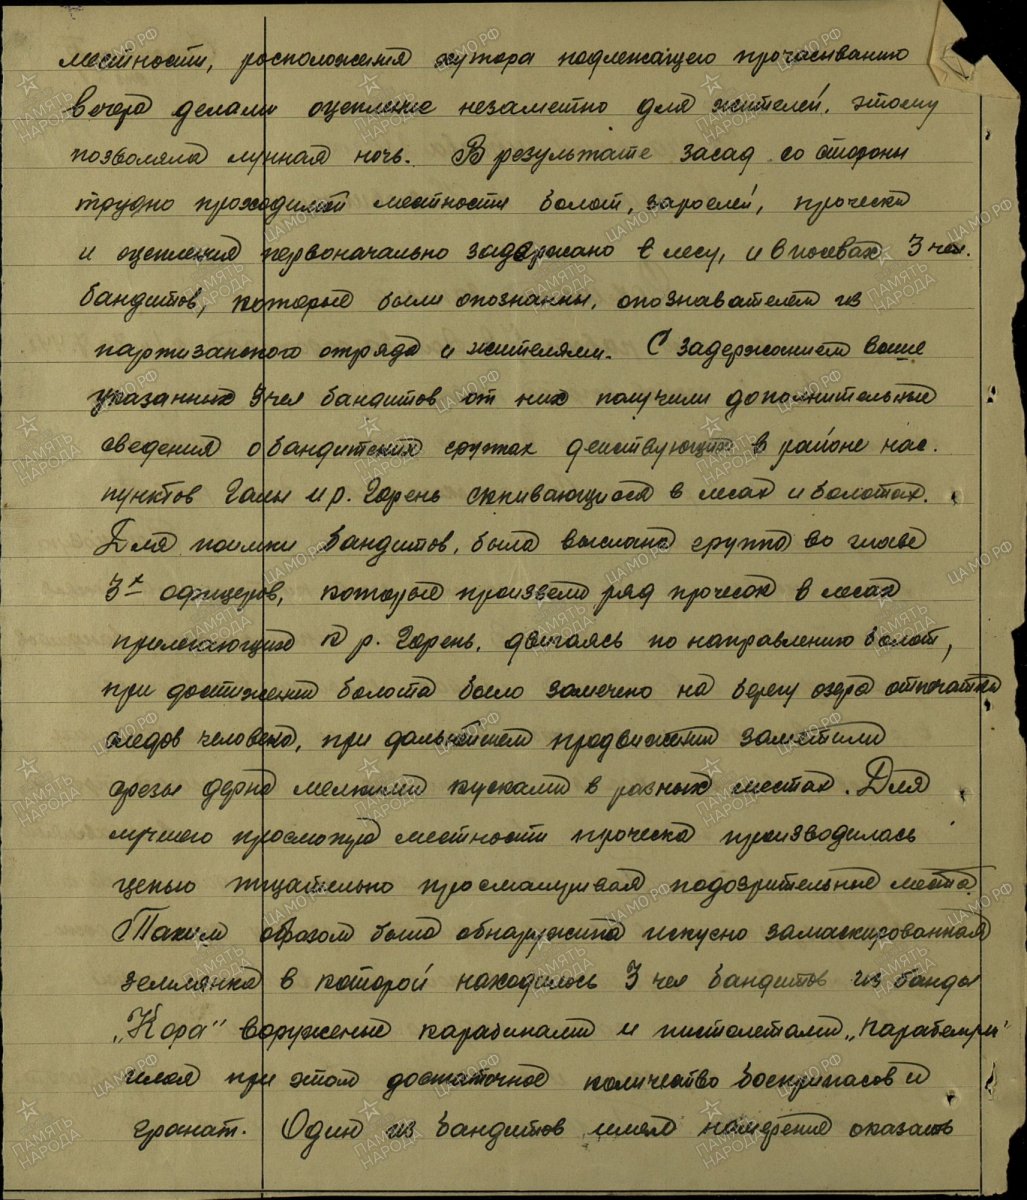 местности, росположения хутора подлежащего прочасыванию
вечера делами оцепление незаметно для жителей, этому
позволяла лунная ночь. В результате засад со стороны
трудно проходимой местности болот, зарослей, прочески
и оцепления первоначально задержано в лесу, и в посевах 3 чел.
бандитов, которые были опознанны, опознавателем из
партизанского отряда и жителями. С задержанием выше
указанных 3 чел бандитов от них получили дополнительные
сведения о бандитских группах действующих в районе нас.
пунктов Галы и р. Горень скрывающиеся в лесах и болотах.
Для поимки бандитов, была выслана группа во главе
3х офицеров, которые произвели ряд прочесок в лесах
прилегающих к р. Горень, двигаясь по направлению болот,
при достижении болота было замечено на берегу озера отпечатки
следов человека, при дальнейшем продвижении заметили
срезы дерна мелкими кусками в разных местах. Для
лучшего просмотра местности проческа производилась
цепью тщательно просматривая подозрительные места.
Таким образом была обнаружина искусно замаскированная
землянка в которой находилось 3 чел бандитов из банды
„Кора" воруженые карабинами и пистолетами „Парабелум"
имея при этом достаточное количество боеприпасов и
гранат. Один из бандитов имел намерение оказать
ПАМЯТЬ НАРОДА
ЦАМО РФ